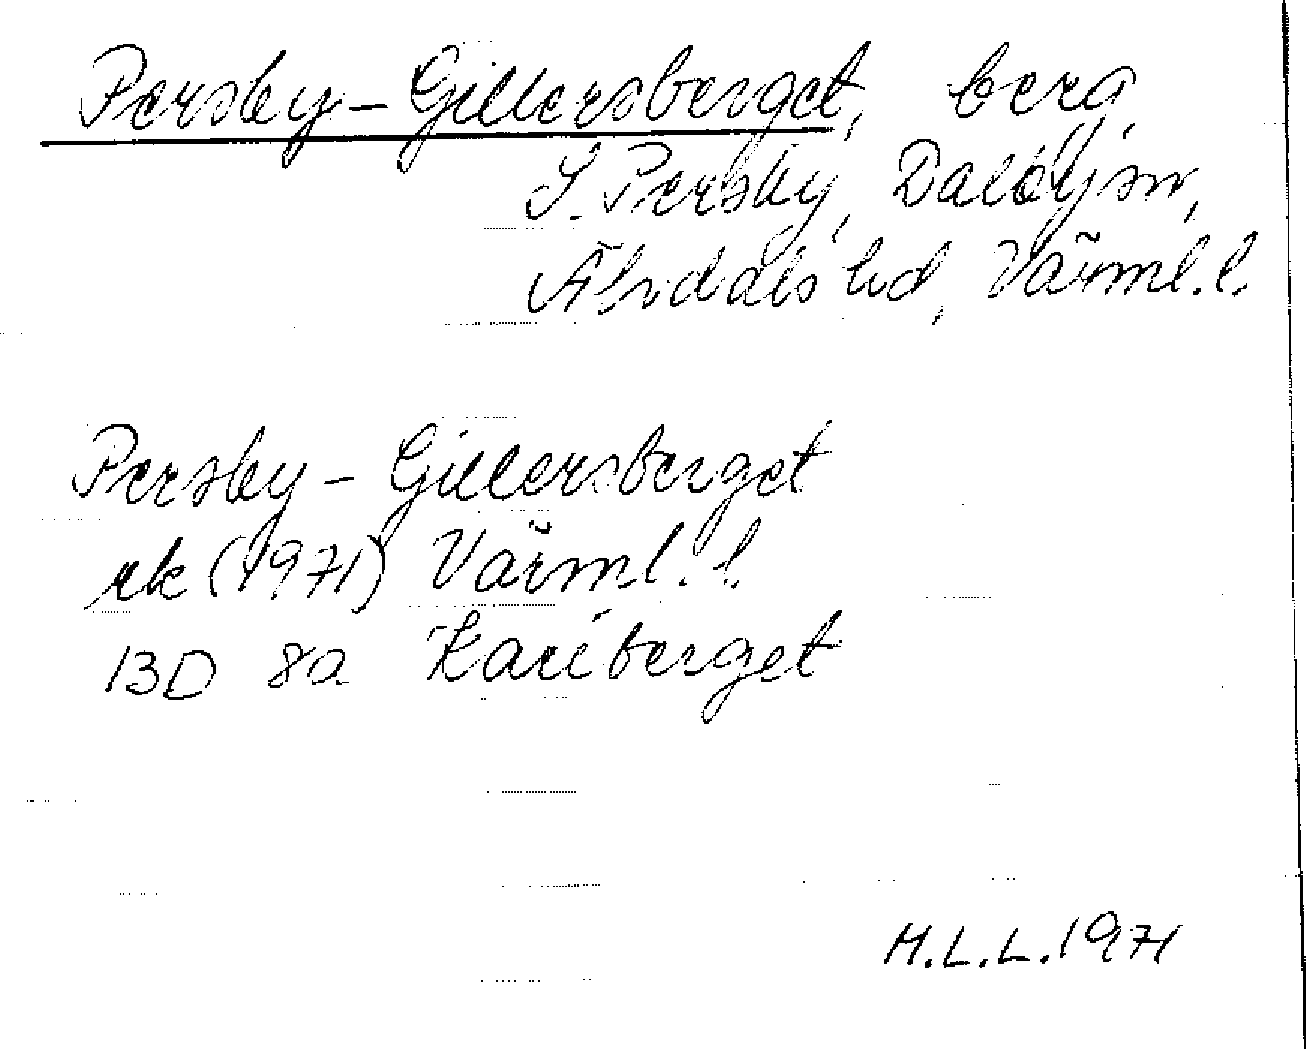 Persby-Gillersberget, berg,
S. Persby, Dalby sn,
Älvdals hd, Värml. l.
Persby - Gillersberget
rk (1971) Värml. l.
13D 8a Kariberget
M.L.L. 1971